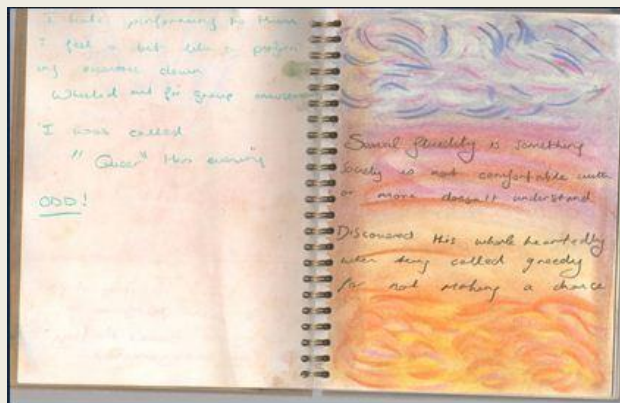 I hate performing to them
I feel a bit like a
my down
Wheeled out for group
I was called
"Queer" this evening
ODD!
Sexual fluidity is something
Society is not comfortable with
or more doesn't understand
Discovered this whole heartedly
when being called greedy
for not making a choice